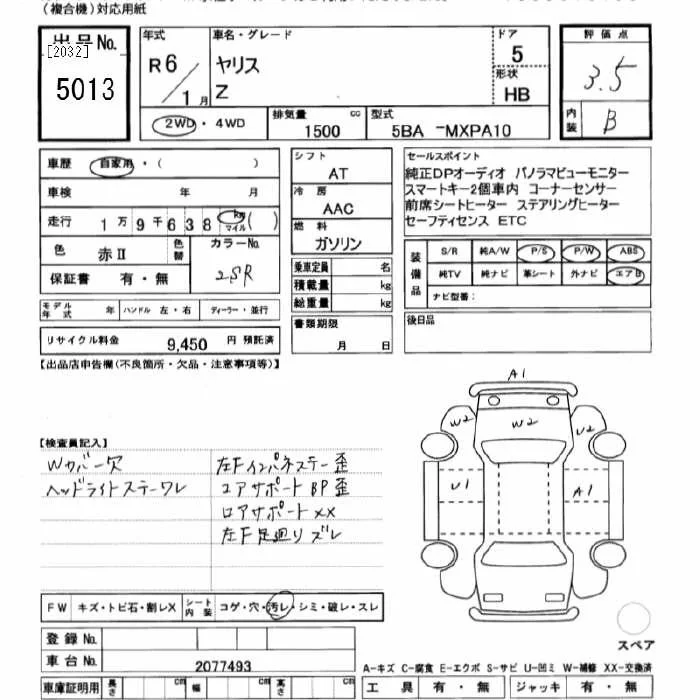 (複合機)対応用紙
出品No.
[2032]
5013
年式
R6/1月
車名・グレード
ヤリス
Z
ドア
5
形状
HB
評価点
3.5
内装
B
2WD・4WD
排気量 cc
1500
型式
5BA -MXPA10
車歴 自家用・( )
車検 年 月
走行 1万9千638 km マイル ( )
色 赤II 色替
カラーNo.
2SR
保証書 有・無
モデル年式 年 ハンドル 左・右 ディーラー・並行
リサイクル料金 9,450 円 預託済
シフト
AT
冷房
AAC
燃料
ガソリン
乗車定員 名
積載量 kg
総重量 kg
書類期限
月 日
セールスポイント
純正DPオーディオ パノラマビューモニター
スマートキー2個車内 コーナーセンサー
前席シートヒーター ステアリングヒーター
セーフティセンス ETC
装備品
S/R 純A/W P/S P/W ABS
純TV 純ナビ 革シート 外ナビ エアB
ナビ型番:
後日品
【出品店申告欄(不良箇所・欠品・注意事項等)】
【検査員記入】
Wカバー欠
ヘッドライトステーワレ
左Fインパネステー歪
コアサポートBP歪
ロアサポートXX
左F足廻リズレ
A1
W2
W2
U2
U1
A1
FW キズ・トビ石・割レX
シート内装 コゲ・穴・汚レ・シミ・破レ・スレ
登録No.
車台No. 2077493
車庫証明用 長さ cm 幅 cm 高さ cm
スペア
A-キズ C-腐食 E-エクボ S-サビ U-凹ミ W-補修 XX-交換済
工具 有・無 ジャッキ 有・無